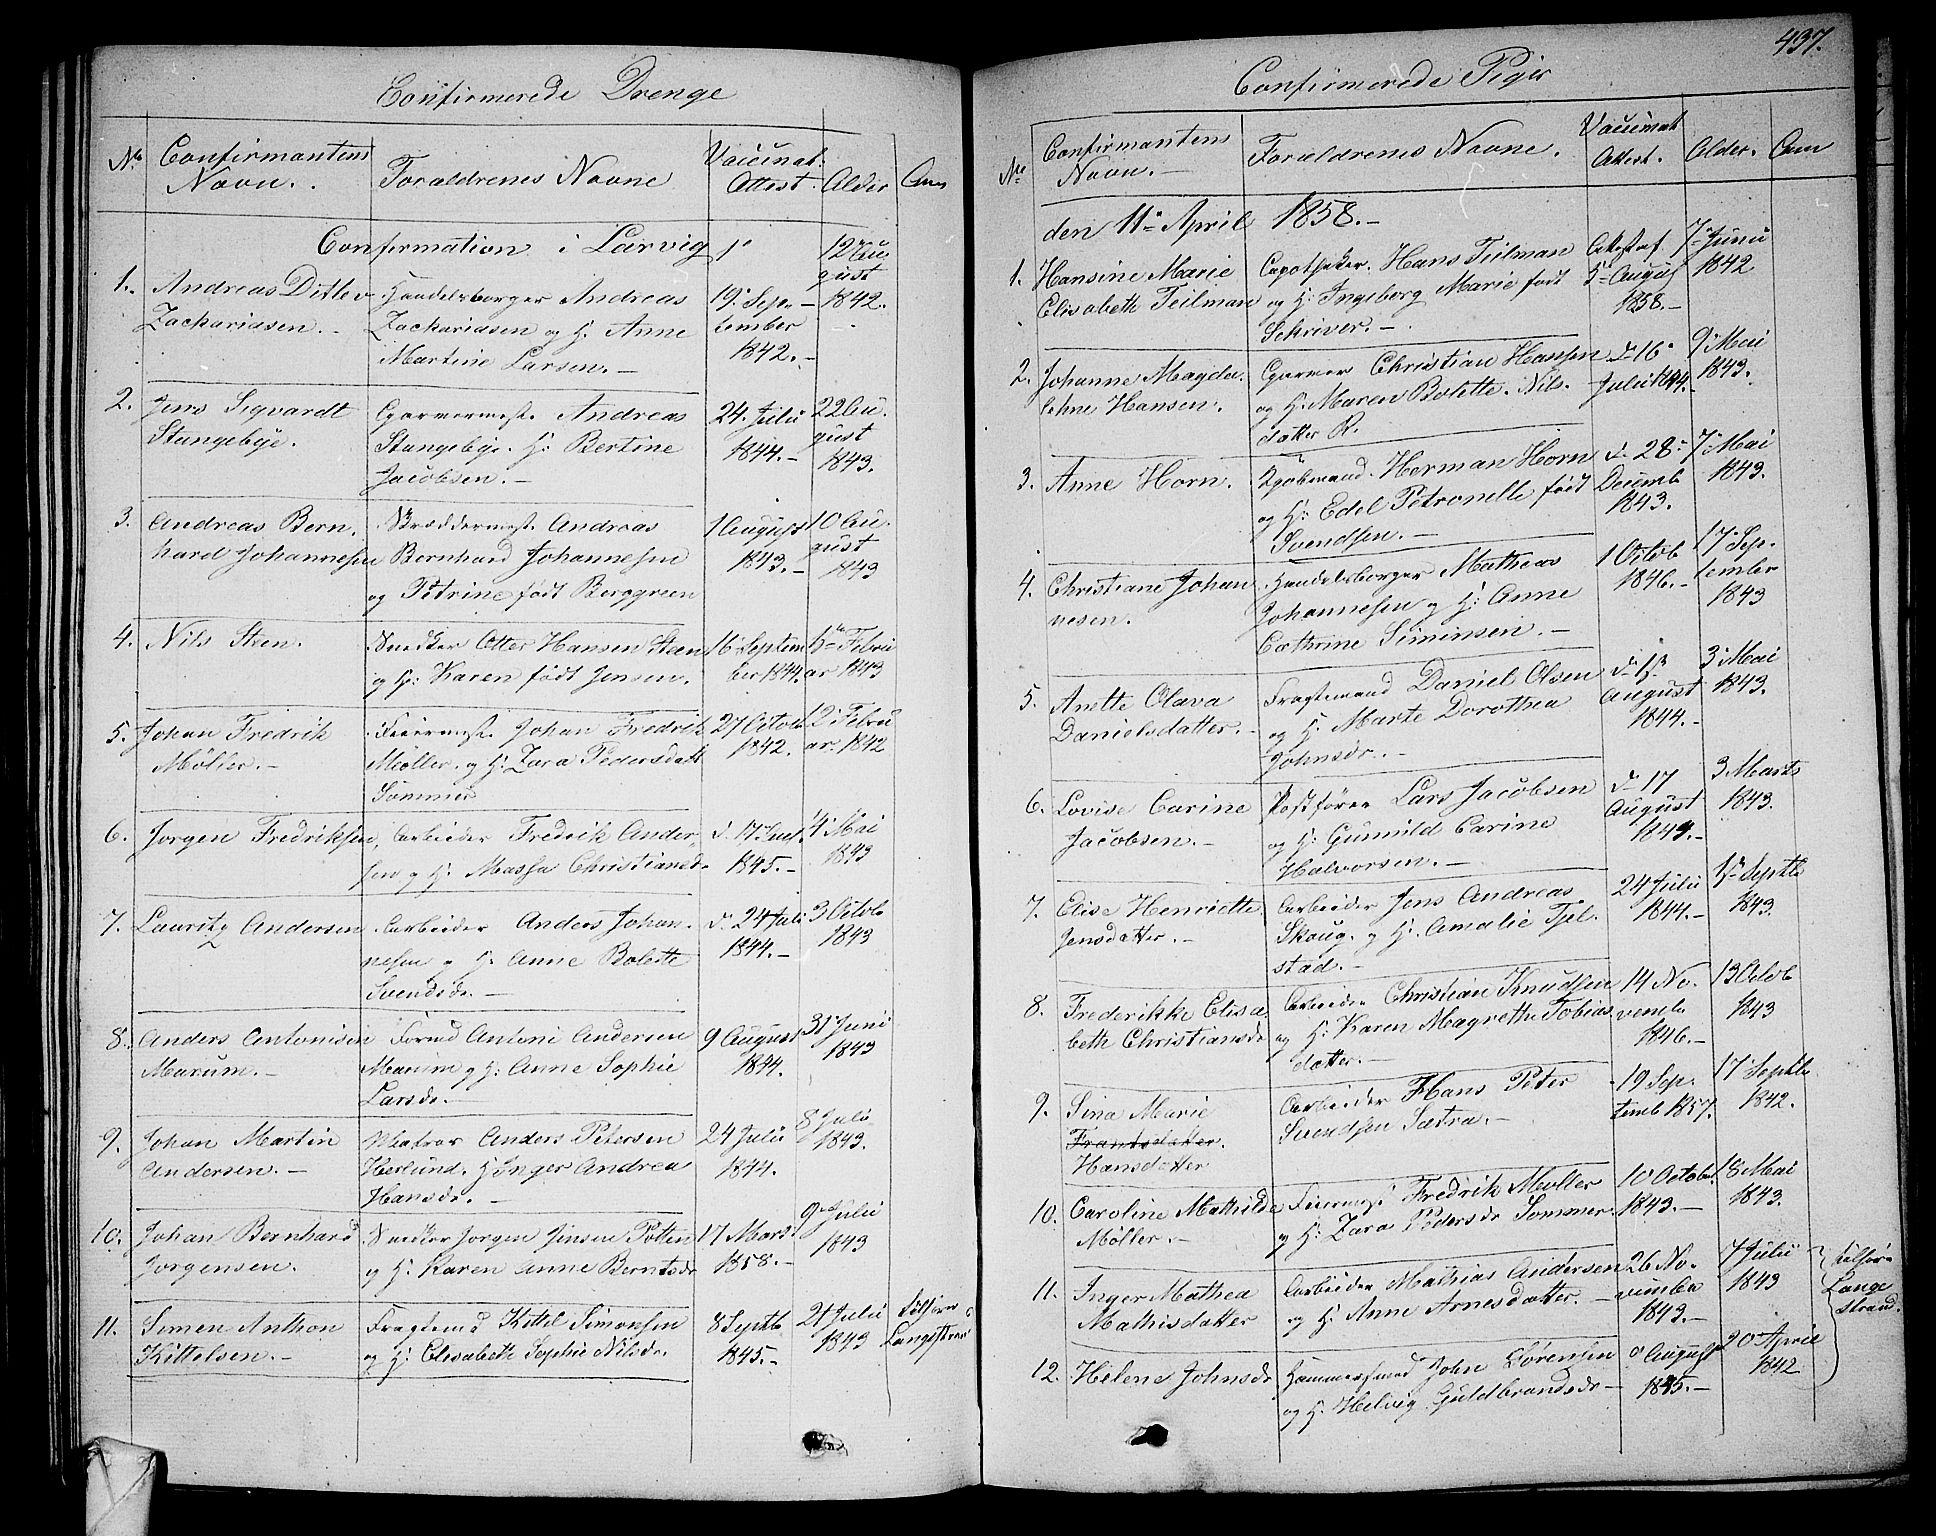 437.
Confirmerede Drenge
No Confirmantens Navn. Forældrenes Navne Vaccinat. Attest. Alder Anm
Confirmation i Larvig
1. Andreas Ditlev Handelsborger Andreas 19. Sep- 12 Au-
Zachariasen. Zachariasen og H. Anne tember gust
Martine Larsen. 1842. 1842.
2. Jens Sigvardt Garvermest. Andreas 24. Julii 22 Au-
Stangebye. Stangebye. H: Bertine 1844. gust
Jacobsen. 1843.
3. Andreas Bern- Andreas 1 August 10 Au-
hard Johannesen Bernhard Johannesen 1843. gust
og Petrine født Berggreen 1843
4. Nils Steen. Snedker Otter Hansen Steen 16 Septem Febru
og H: Karen født Jensen. ber 1844. ar 1843
5. Johan Fredrik Feiermest. Johan Fredrik 27 Octob 12 Febru
Møller. Møller. og H: Zara Pedersdatt 1842. ar. 1842
Sommer
6. Jorgen Fredriksen, Arbeider Fredrik Ander- d. 17 4 Mai
sen og H: Massa Christiansd. 1845. 1843
7. Lauritz Andersen Arbeider Anders Johan- d. 24 Juli 3 Octob
nesen og H: Anne Bolette 1844. 1843
Svendsdr.
8. Anders Antonisen Formd Antoni Andersen 9 August 31 Juni
Marum. Marum og H: Anne Sophie 1844. 1843
Larsdr.
9. Johan Martin Matros Anders Petersen 24 Julii 8 Juli
Andersen. Herlund. H: Inger Andrea 1844. 1843.
Hansdr.
10. Johan Bernhard Snedker Jorgen Jensen Potten 17 Mars 9 Julii
Jorgensen. og H: Karen Anne Berntsdr 1858. 1843
11. Simen Anthon Fragtemd Kittel Simonsen 8 Septb 21 Julii
Kittelsen. og H: Elisabeth Sophie Nilsdr. 1845. 1843 Langestrand
Confirmerede Piger
No Confirmantens Navn. Forældrenes Navne. Vaccinat Attest. Alder. Anm
den 11te April 1858.
1. Hansine Marie Apotheker. Hans Teilman Attest af 7 Junii
Elisabeth Teilman og H: Ingeborg Marie født 5 August 1842
Schriver. 1858.
2. Johanne Magda- Garver Christian Hansen d. 16 9 Mai
lehne Hansen. og H. Maren Bolette Nils- Julii 1844. 1843.
datter R.
3. Anne Horn. Kjøbmand. Herman Horn d. 28 7 Mai
og H: Edel Petronelle født Decemb 1843.
Svendsen. 1843.
4. Christiane Johan Handelsborger Mathias 1 Octob 17 Sep-
nesen. Johannesen og H: Anne 1846. tember
Cathrine Siminsen. 1843
5. Anette Olava Fragtemand Daniel Olsen d. 13 3 Mai
Danielsdatter. og H. Marte Dorothea August 1843.
Johnsdr. 1844.
6. Lovise Carine Postfører Lars Jacobsen d. 17 3 Marts
Jacobsen. og H: Gunnild Carine August 1843.
Halvorsen. 1843.
7. Elise Henriette Arbeider Jens Andreas 24 Julii Septb
Jensdatter. Skoug. og H. Amalie Tjel- 1844. 1843.
stad.
8. Frederikke Elisa Arbeider Christian Knudsen 14 No- 13 Octob
beth Christiansdr og H: Karen Magrethe Tobias- vemb 1843
datter. 1846.
9. Sina Marie Arbeider Hans Peter 19 Sep- 17 Septb
Frantsdatter. Svendsen Sætra. temb 1857. 1842.
Hansdatter
10. Caroline Mathilde Feiermest Fredrik Møller 10 October 18 Mai
Møller. og H: Zara Pedersdr Sommer 1843. 1843.
11. Inger Mathea Arbeider Mathias Andersen 26 No- 7 Julii
Mathisdatter og H: Anne Arnesdatter. vember 1843 Lange
1843. strand.
12. Helene Johnsdr Hammersmed John Sørensen August 20 April
og H. Helvig Guldbrandsdr 1845. 1842